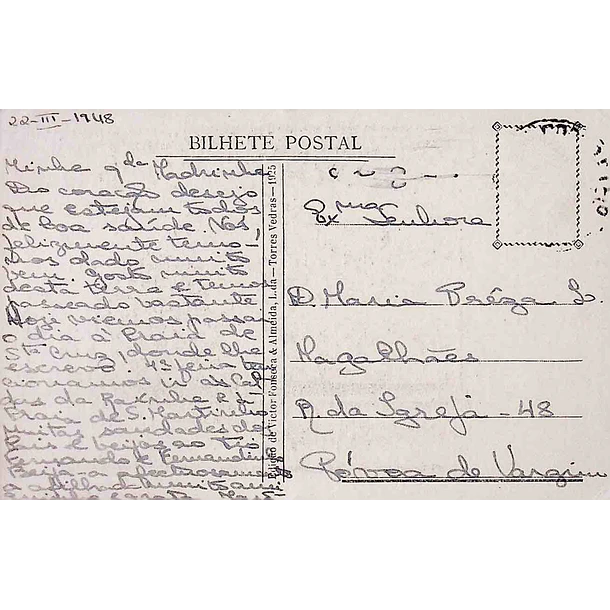 22-III-1948
BILHETE POSTAL
Minha q.da Madrinha
Do coração desejo
que estejam todos
de boa saúde. Nós
felizmente temo-
nos dado muito
bem. Gosto muito
desta terra e temos
passeado bastante
Hoje viemos passar
o dia à Praia de
Sta Cruz, donde lhe
escrevo. 4ª feira
cionamos ir às Cal
das da Rainha e à
Praia de S. Martinho
Muitas saudades de
e beijos ao tio
Fernando e Fernandinho
Beija-a
a afilhada muito ami
P. Edição de Victor Fonseca & Almeida, L.da — Torres Vedras — 1925
Exma Senhora
D. Maria Prêza L.
Magalhães
R. da Igreja - 48
Póvoa de Varzim